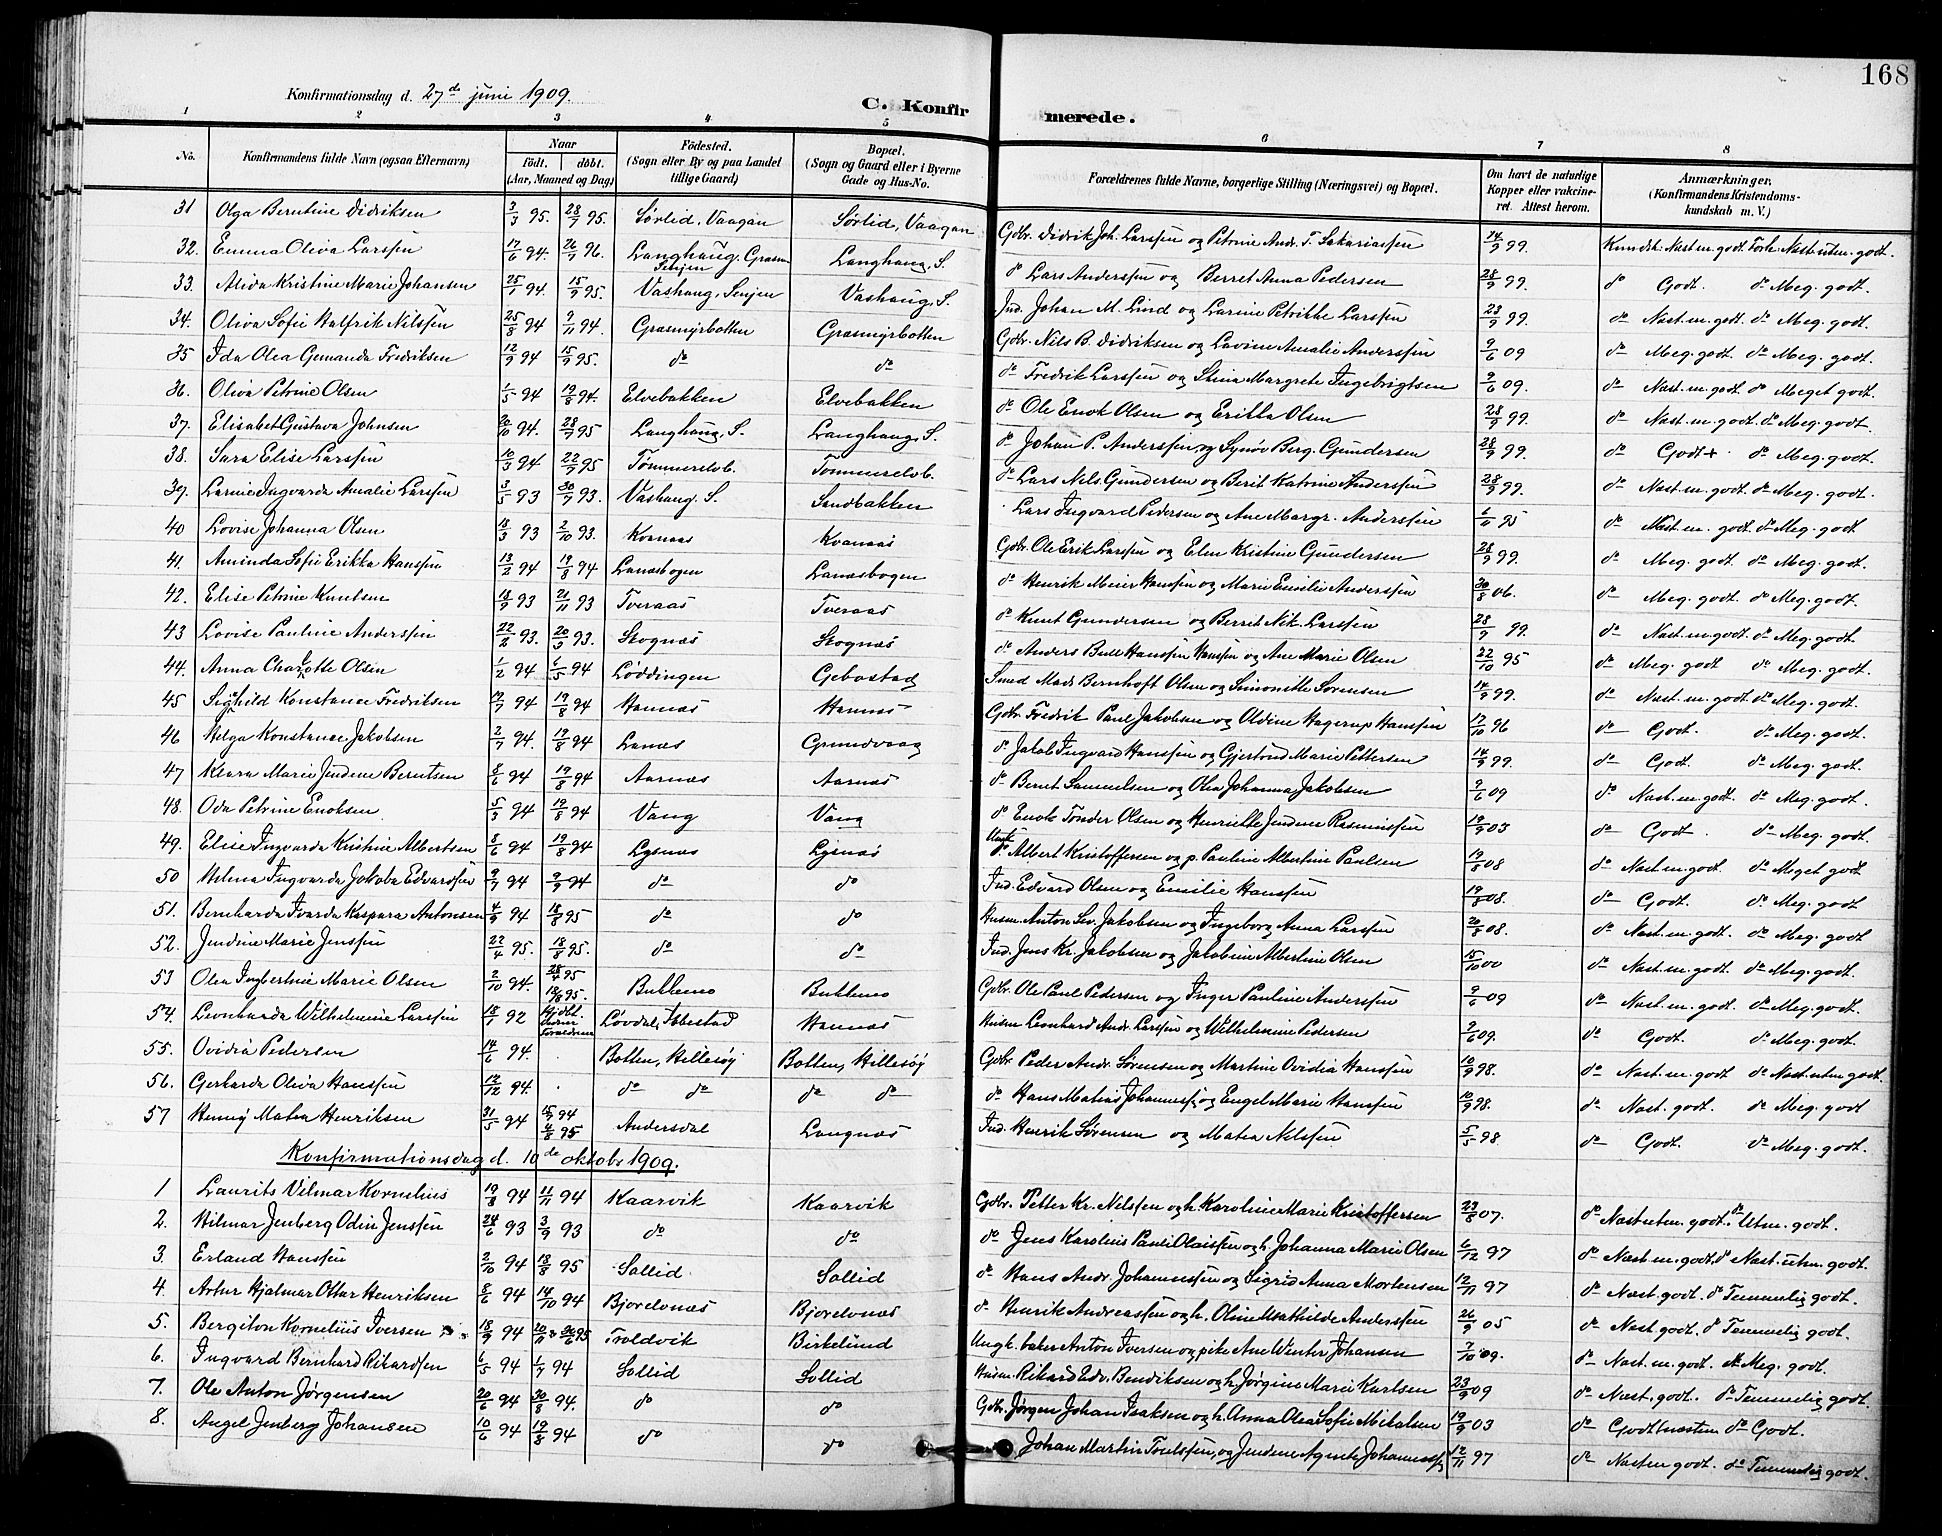 168
Konfirmationsdag d. 27de juni 1909.
C. Konfirmerede.
1 2 3 4 5 6 7 8
No. Konfirmandens fulde Navn (ogsaa Efternavn) Naar født. døbt. (Aar, Maaned og Dag) Fødested. (Sogn eller By og paa Landet tillige Gaard) Bopæl. (Sogn og Gaard eller i Byerne Gade og Hus-No. Forældrenes fulde Navne, borgerlige Stilling (Næringsvei) og Bopæl. Om havt de naturlige Kopper eller vakcineret. Attest herom. Anmærkninger, (Konfirmandens Kristendomskundskab m. V.)
31 Olga Berntine Didriksen 3/3 95. 28/7 95. Sørlid, Vaagan Sørlid, Vaagan Gdbr. Didrik Joh. Larssen og Petrine Andr. T. Sakariassen 14/9 99. Kundsk. Næst m. godt Forh. Næst uten. godt.
32. Emma Oliva Larssen 17/6 94. 26/7 96. Langhaug, Grasm. Senjen Langhaug, S. do Lars Anderssen og Berret Anna Pedersen 28/9 99. do Godt. do Meg. godt.
33. Alida Kristine Marie Johansen 25/1 94. 15/9 95. Vashaug, Senjen Vashaug, S. Ind. Johan M. Lind og Larine Petrikke Larssen 23/9 99. do Næst m. godt. do Meg. godt.
34. Oliva Sofie Halfrik Nilssen 25/8 94 9/11 94. Grasmyrbotten Grasmyrbotten Gdbr. Nils B. Didriksen og Lovine Amalie Anderssen 9/6 09 do Meg. godt. do Meg. godt.
35 Ida Olea Gemanda Fredriksen 12/9 94 15/9 95. do do do Fredrik Larssen og Stina Margrete Ingebrigtsen 9/6 09. do Næst. m. godt do Meget godt.
36. Oliva Petrine Olsen 1/5 94 19/8 94. Elvebakken Elvebakken do Ole Enok Olsen og Erikka Olsen 28/9 99. do Næst m. godt. do Meg. godt.
37. Elisabet Gustava Johnsen 20/10 94. 28/7 95 Langhaug, S. Langhaug, S. do Johan P. Anderssen, og Synøv Berg. Gundersen 28/9 99. do Godt+ do Meg. godt.
38. Sara Elise Larssen 10/3 94 22/9 95 Tømmerelvb. Tømmerelvb. do Lars Nels. Gundersen og Berit Katrine Anderssen 28/9 99. do Næst m. godt. do Meg. godt.
39. Larnie Ingvarda Amalie Larssen 3/5 93 30/7 93. Vashaug. S. Sandbakken Lars Ingvard Pedersen og Ane Margr. Anderssen 6/11 95 do Næst m. godt do Meg. godt
40 Lovise Johanna Olsen 18/3 93 2/10 93. Kvanaas Kvanaas Gdbr. Ole Erik Larssen og Elen Kristine Gundersen 28/9 99. do Meg. godt. do Meg. godt.
41. Aminda Sofie Erikka Hanssen 13/2 94 19/8 94 Lanæsbogen Lanæsbogen do Henrik Meier Hanssen og Marie Emilie Anderssen 30/8 06. do Meg. godt. do Meg. godt.
42. Elise Petrine Knutsen 18/9 93 21/11 93 Tveraas Tveraas do Knut Gundersen og Berret Nik. Larssen 28/9 99. do Næst m. godt do Meg. godt.
43 Lovise Pauline Anderssen 22/2 93. 20/3 93. Skognæs Skognæs do Anders Bull Hanssen Hanssen og Ane Marie Olsen 22/10 95 do Meg. godt do Meg. godt.
44. Anna Charlotte Olsen 1/2 94 6/5 94 Løddingen Gebostad Smed Mads Bernhoft Olsen og Simonitte Sørensen 14/9 99. do Næst. m. godt do Meg. godt.
45 Sighild Konstance Fredriksen 19/7 94 19/8 94 Hamnæs Hamnæs Gdbr. Fredrik Paul Jakobsen og Oldine Hagerup Hanssen 17/10 96 do Godt. do Meg. godt.
46 Helga Konstance Jakobsen 2/7 94. 19/8 94 Lanæs Grundvaag do Jakob Ingvard Hanssen og Gjertrud Marie Pettersen 14/9 99. do Godt do Meg. godt.
47 Klara Marie Jendine Berntsen 8/6 94 19/8 94 Aarnæs Aarnæs do Bernt Samuelsen og Olea Johanna Jakobsen 9/6 09 do Næst. m. godt. do Meg. godt.
48. Oda Petrine Enoksen 5/3 94 19/8 94 Vang Vang do Enok Tønder Olsen og Henriette Jendine Rasmussen 19/9 03 do Godt. do Meg. godt.
49. Elise Ingvarda Kristine Albertsen 8/6 94 19/8 94 Lysnæs Lysnæs Ungk. Albert Kristoffersen og p. Pauline Albertine Paulsen 19/8 08 do Næst m. godt. do Meget godt
50 Helma Ingvarda Jakoba Edvardsen 9/7 94 9/9 94 do do Ind. Edvard Olsen og Emilie Hanssen 19/8 08. do Godt. do Meg. godt
51. Bernharda Ivarda Kaspara Antonsen 4/9 94 18/8 95 do do Husm. Anton Sev. Jakobsen og Ingeborg Anna Larssen 20/8 08. do Næst m. godt. do Meg. godt.
52. Jendine Marie Jenssen 22/4 95. 18/8 95. do do Ind. Jens Kr. Jakobsen og Jakobine Albertine Olsen 15/10 00 do Næst m. godt do Meg. godt.
53 Olea Ingbertine Marie Olsen 2/10 94. 28/4 95 18/8 95. Bukkemo Bukkemo Gdbr. Ole Paul Pedersen og Inger Pauline Anderssen 9/6 09 do Næst m. godt. do Meg. godt.
54. Leonharda Wilhelmine Larssen 18/1 92 Hjdbt. Løvdal, Ibbestad Hamnæs Husm Leonhard Andr. Larssen og Wilhelmine Pedersen 2/6 09. do Godt. do Meg. godt.
55. Ovidia Pedersen 14/6 94. Botten, Hillesøy Botten, Hillesøy Gdbr. Peder Andr. Sørensen og Martine Ovidia Hanssen 10/9 98. do Næst m. godt do Næst uten godt.
56. Gerharda Oliva Hanssen 12/12 94. do do do do do Hans Matias Johannes. og Engel Marie Hanssen 10/9 98. do Næst. godt. do Meg. godt
57 Henny Matea Henriksen 31/5 94 15/7 94 4/8 95 Andersdal Langnæs Ind. Henrik Sørensen og Matea Nilssen 5/5 98 do Godt. do Meg. godt.
Konfirmationsdag d. 10de oktobr 1909.
1 Laurits Vilmar Kornelius 19/8 94 11/11 94 Kaarvik Kaarvik Gdbr. Petter Kr. Nilssen og h. Karoline Marie Kristoffersen 23/8 07. do Næst uten. godt. do Utm. godt.
2. Hilmar Jenberg Odin Jenssen 24/6 93 3/9 93 do do do Jens Karolius Pauli Olaissen og h. Johanna Marie Olsen 6/12 97 do Næst m. godt do Næst. utm. godt.
3. Erland Hanssen 2/10 94 18/8 95 Sollid Sollid do Hans Andr. Johannessen og Sigrid Anna Mortensen 12/11 97 do Næst. godt. do Temmelig godt.
4. Artur Hjalmar Ottar Henriksen 8/6 94 14/10 94 Bjorelvnæs Bjorelvnæs do Henrik Andreassen og h. Oline Mathilde Anderssen 26/9 05 do Næst godt. do Temmelig godt.
5. Bergiton Kornelius Iversen 18/9 94 20/11 & 30/6 95 Troldvik Birkelund Ungk. baker Anton Iversen og pike Ane Winter Johansen 7/10 09. do Næst. m. godt. do Meg. godt.
6. Ingvard Bernhard Rikardsen 6/5 94 1/7 94 Sollid Sollid Husm. Rikard Edv. Bendiksen og h. Jørgine Marie Karlsen 23/9 09 do Næst. godt. do Temmelig godt.
7. Ole Anton Jørgensen 20/6 94 30/8 94. do do Gdbr. Jørgen Johan Isaksen og h. Anna Olea Sofie Mikalsen 19/9 03 do Godt næsten do Godt.
8. Angel Jenberg Johansen 10/6 94 19/8 94 do do Johan Martin Toulssen, og Jendine Agnete Johannessen 12/11 97 do Næsten godt. do Temmelig godt.